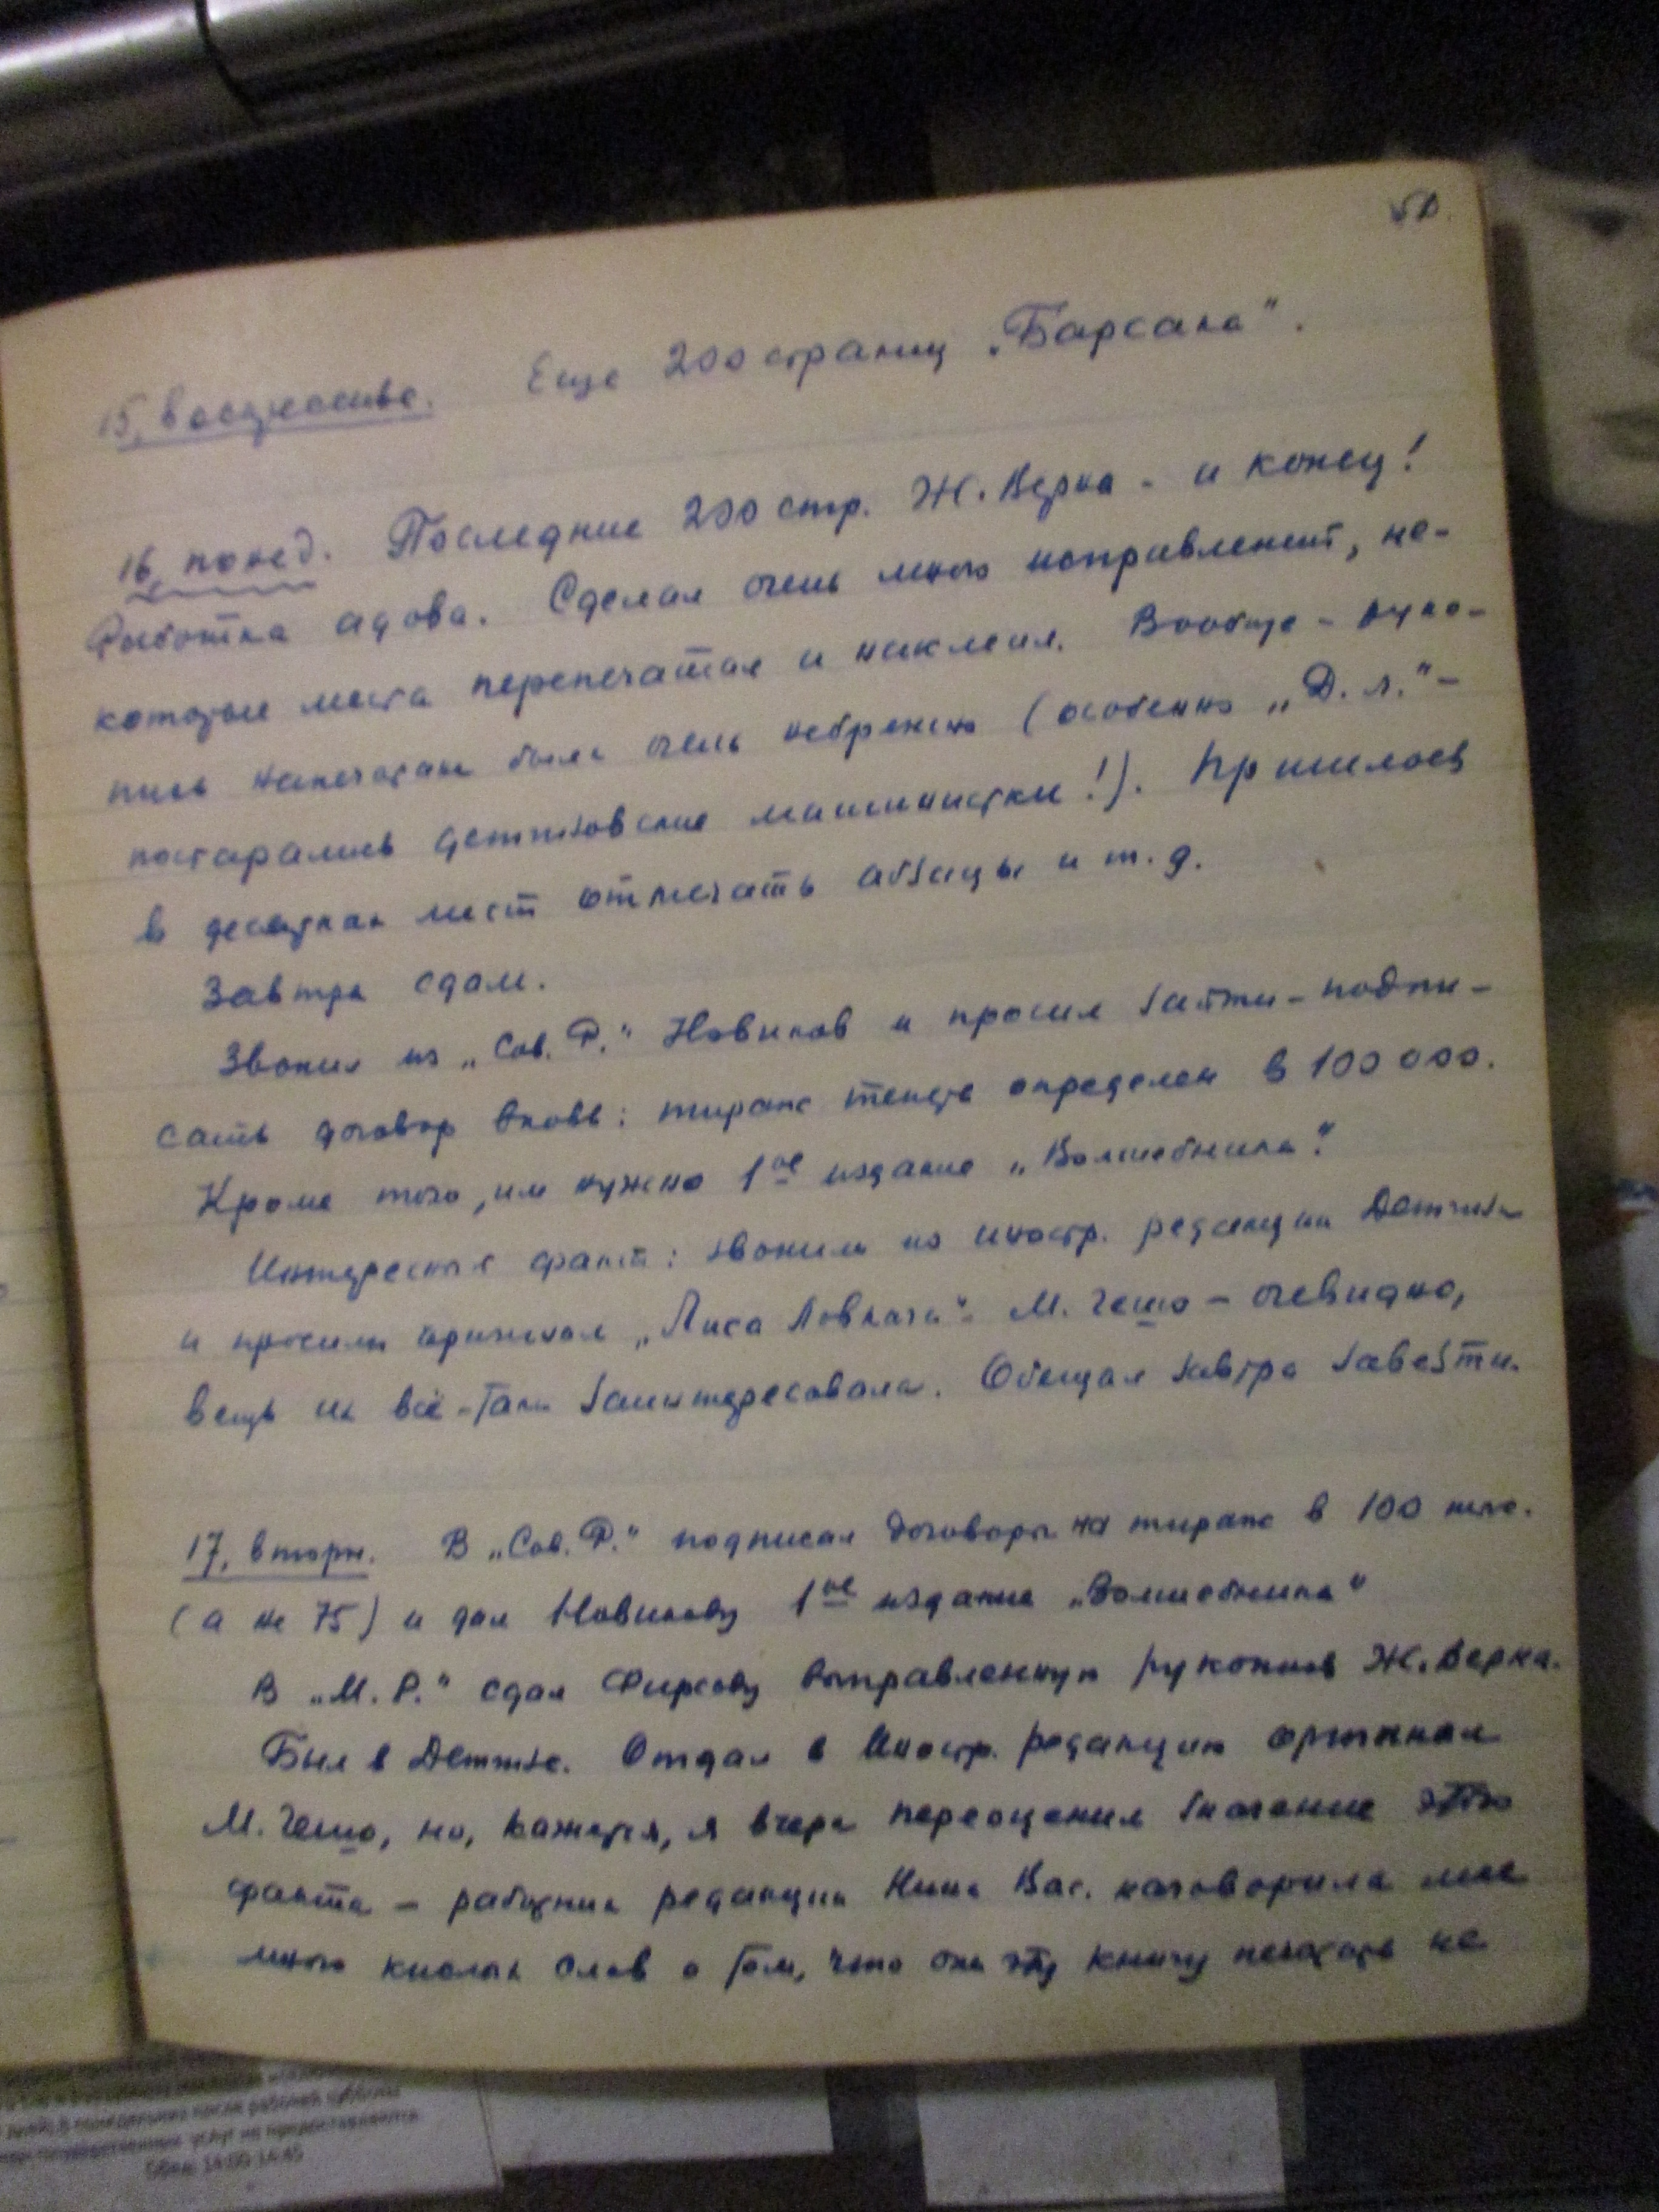 15, воскресенье. Еще 200 страниц „Барсака".
16, понед. Последние 200 стр. Ж. Верна - и конец!
Работка адова. Сделал очень много исправлений, не-
которые места перепечатал и наклеил. Вообще - руко-
пись напечатана была очень небрежно (особенно „Д. л." -
постарались детгизовские машинистки!). Пришлось
в десятках мест отмечать абзацы и т. д.
Завтра сдам.
Звонил из „Сов. Р." Новиков и просил зайти - подпи-
сать договор вновь: тираж теперь определен в 100 000.
Кроме того, им нужно 1ое издание „Волшебника".
Интересный факт: звонили из иностр. редакции Детгиза
и просили оригинал „Лиса Ловкача" М. Гешо - очевидно,
вещь их всё-таки заинтересовала. Обещал завтра завезти.
17, вторн. В „Сов. Р." подписал договоры на тираж в 100 тыс.
(а не 75) и дал Новикову 1ое издание „Волшебника"
В „М. Р." сдал Фирсову выправленную рукопись Ж. Верна.
Был в Детгизе. Отдал в Иностр. редакцию оригинал
М. Гешо, но, кажется, я вчера переоценил значение этого
факта - работник редакции Нина Вас. наговорила мне
много кислых слов о том, что они эту книгу печатать не
в понедельник после рабочей субботы
услуг не предоставляется
14:00 14:45